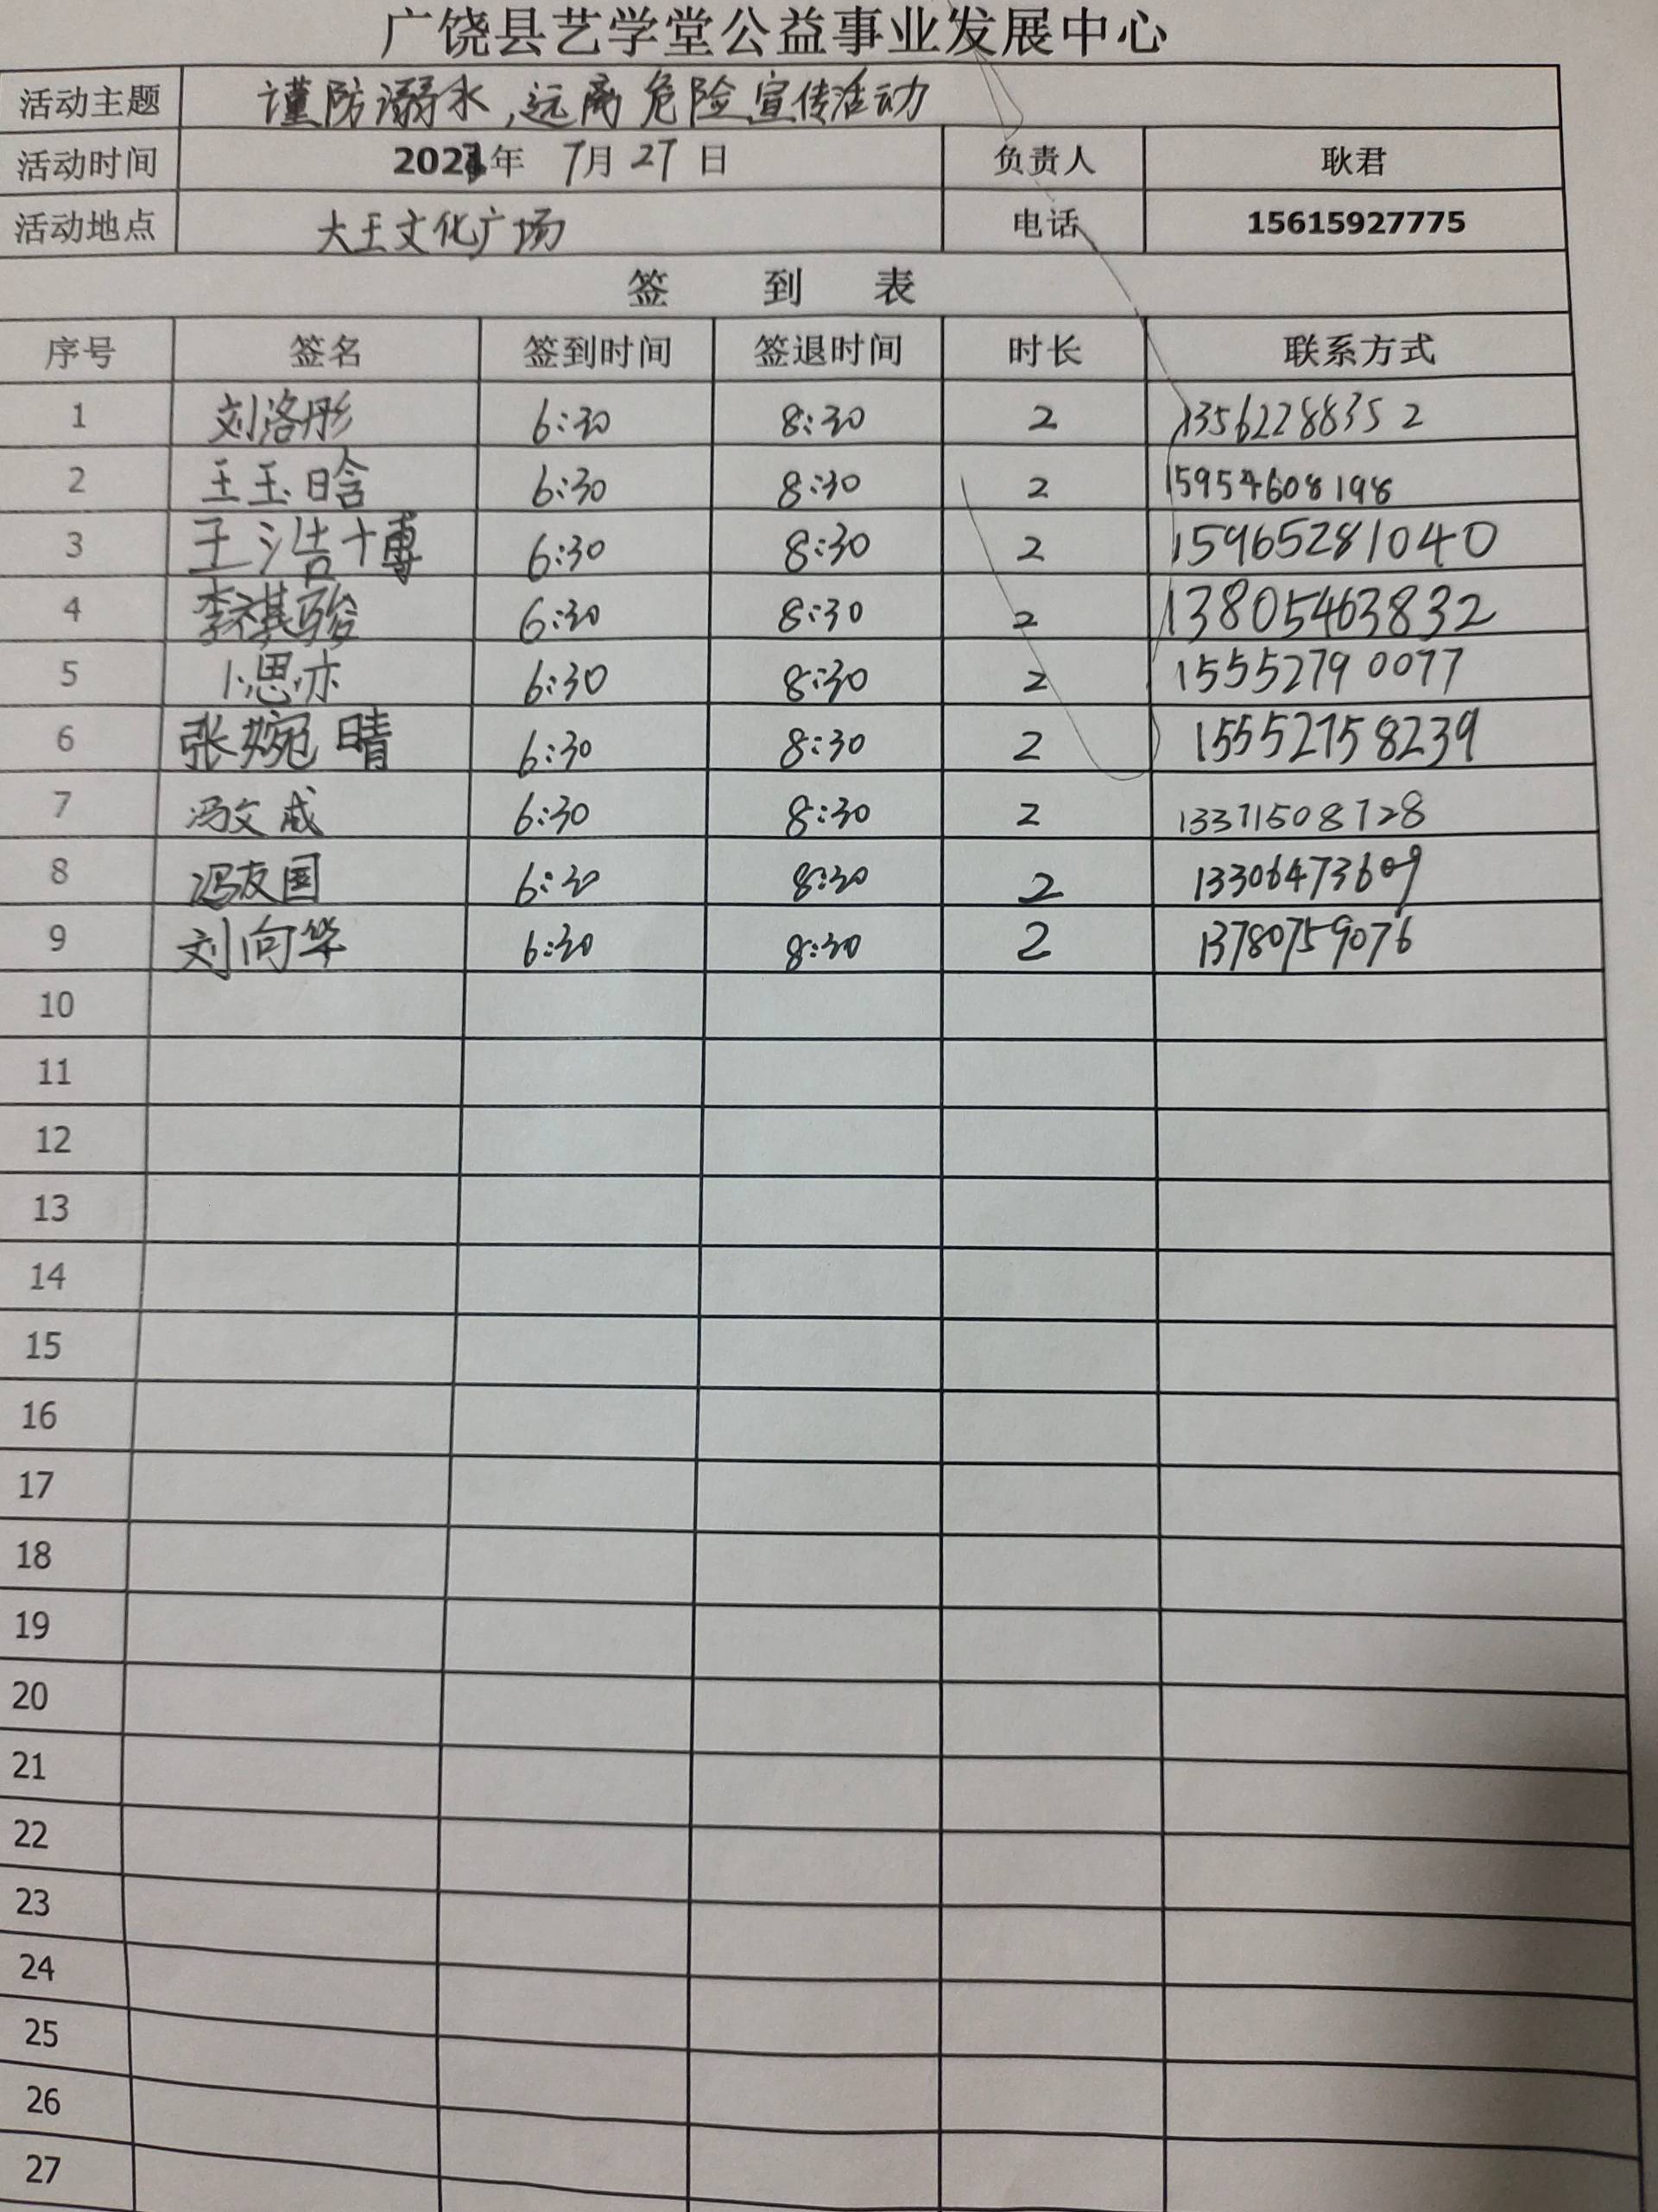 广饶县艺学堂公益事业发展中心
活动主题 谨防溺水,远离危险宣传活动
活动时间 2023年 7月27日 负责人 耿君
活动地点 大王文化广场 电话 15615927775
签 到 表
序号 签名 签到时间 签退时间 时长 联系方式
1 刘洛彤 6:30 8:30 2 13562288352
2 王玉晗 6:30 8:30 2 15954608198
3 王浩博 6:30 8:30 2 15965281040
4 李祺骏 6:30 8:30 2 13805463832
5 卜思亦 6:30 8:30 2 15552790077
6 张婉晴 6:30 8:30 2 15552758239
7 冯文成 6:30 8:30 2 13371508728
8 冯友国 6:30 8:30 2 13306473609
9 刘向华 6:30 8:30 2 13780759076
10
11
12
13
14
15
16
17
18
19
20
21
22
23
24
25
26
27